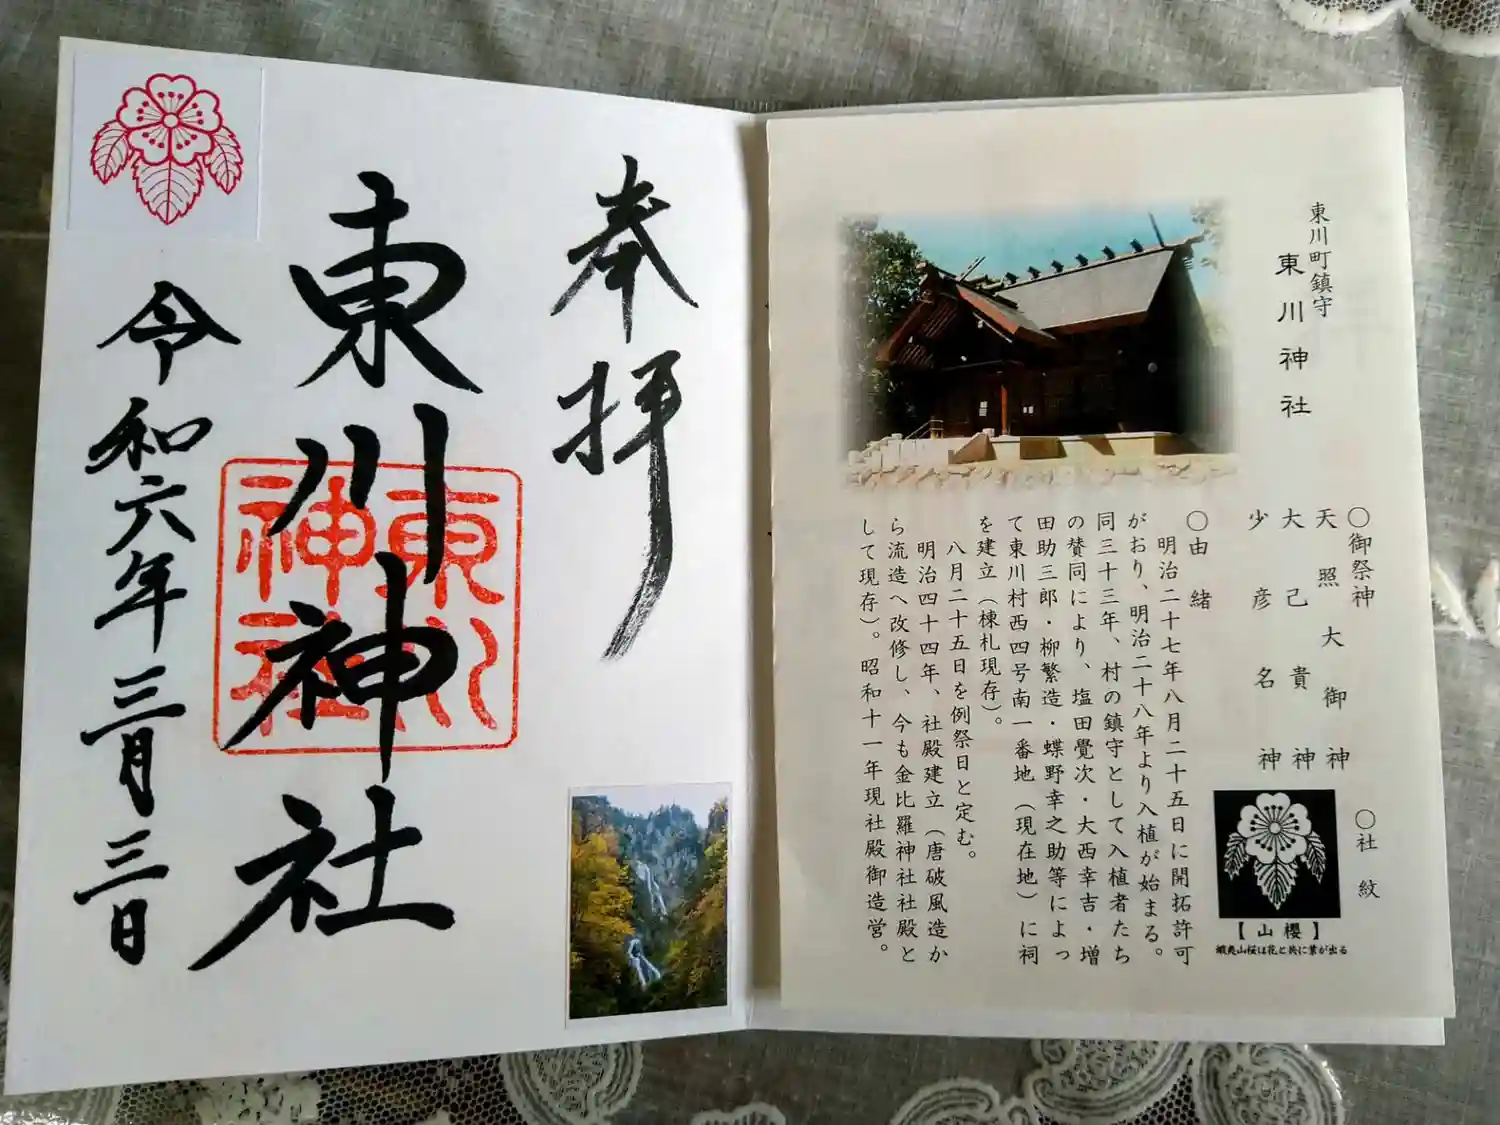 奉拝
東川神社
東川神社
令和六年三月三日
東川町鎮守
東川神社
〇御祭神
天照大御神
大己貴神
少彦名神
〇社紋
【山櫻】
蝦夷山桜は花と共に葉が出る
〇由緒
明治二十七年八月二十五日に開拓許可
がおり、明治二十八年より入植が始まる。
同三十三年、村の鎮守として入植者たち
の賛同により、塩田覺次・大西幸吉・増
田助三郎・柳繁造・蝶野幸之助等によっ
て東川村西四号南一番地(現在地)に祠
を建立(棟札現存)。
八月二十五日を例祭日と定む。
明治四十四年、社殿建立(唐破風造か
ら流造へ改修し、今も金比羅神社社殿と
して現存)。昭和十一年現社殿御造営。